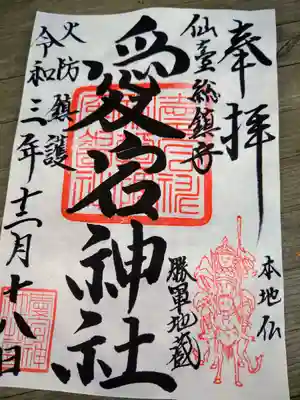 奉拝
仙臺総鎮守
愛宕神社
勝軍地蔵
本地仏
火防鎮護
令和三年十二月十八日